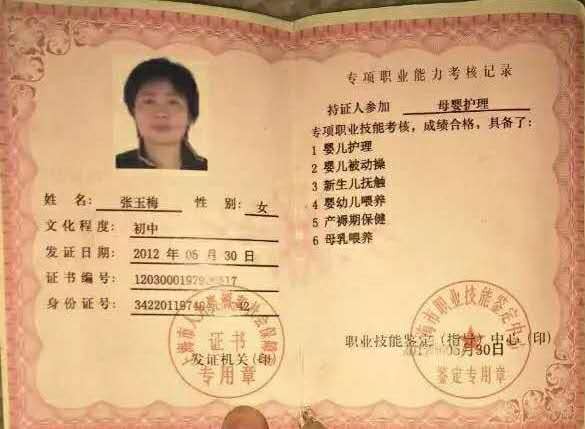 姓 名: 张玉梅 性 别: 女
文化程度: 初中
发证日期: 2012 年 05 月 30 日
证书编号:
身份证号:
发证机关(印)
证书
专用章
专项职业能力考核记录
持证人参加 母婴护理
专项职业技能考核，成绩合格，具备了:
1 婴儿护理
2 婴儿被动操
3 新生儿抚触
4 婴幼儿喂养
5 产褥期保健
6 母乳喂养
职业技能鉴定(指导)中心(印)
月30日
上海市职业技能鉴定中心
鉴定专用章